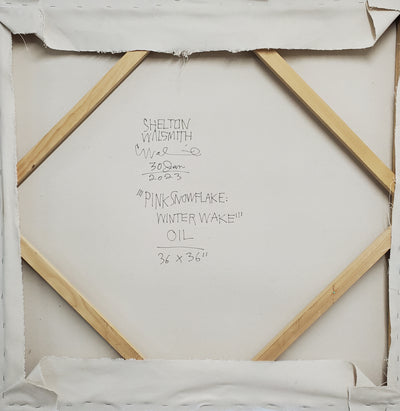 SHELTON
WALSMITH
30 Jan
2023
"PINK SNOWFLAKE:
WINTER WAKE"
OIL
36 x 36"